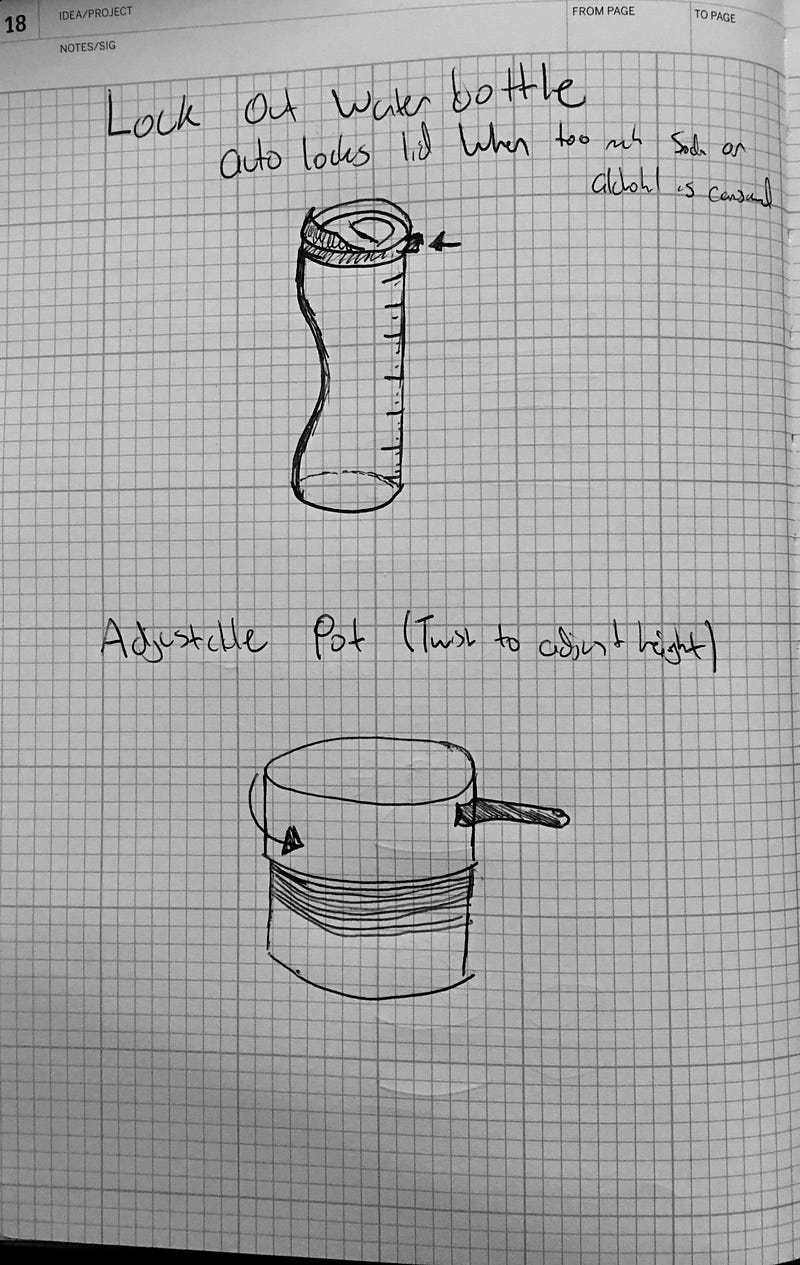 18
IDEA/PROJECT
FROM PAGE
TO PAGE
NOTES/SIG
Lock Out Water bottle
auto locks lid When too Soda or
alchohl is
Adjustable Pot (Twist to adjust height)